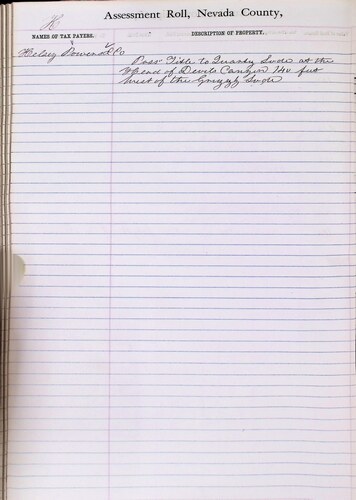 H
Assessment Roll, Nevada County,
NAMES OF TAX PAYERS.
DESCRIPTION OF PROPERTY.
Helsey Bowen & Co
Poss Title to Quartz Lode at the
Head of Devils Canyon 140 feet
West of the Grizzly Lode